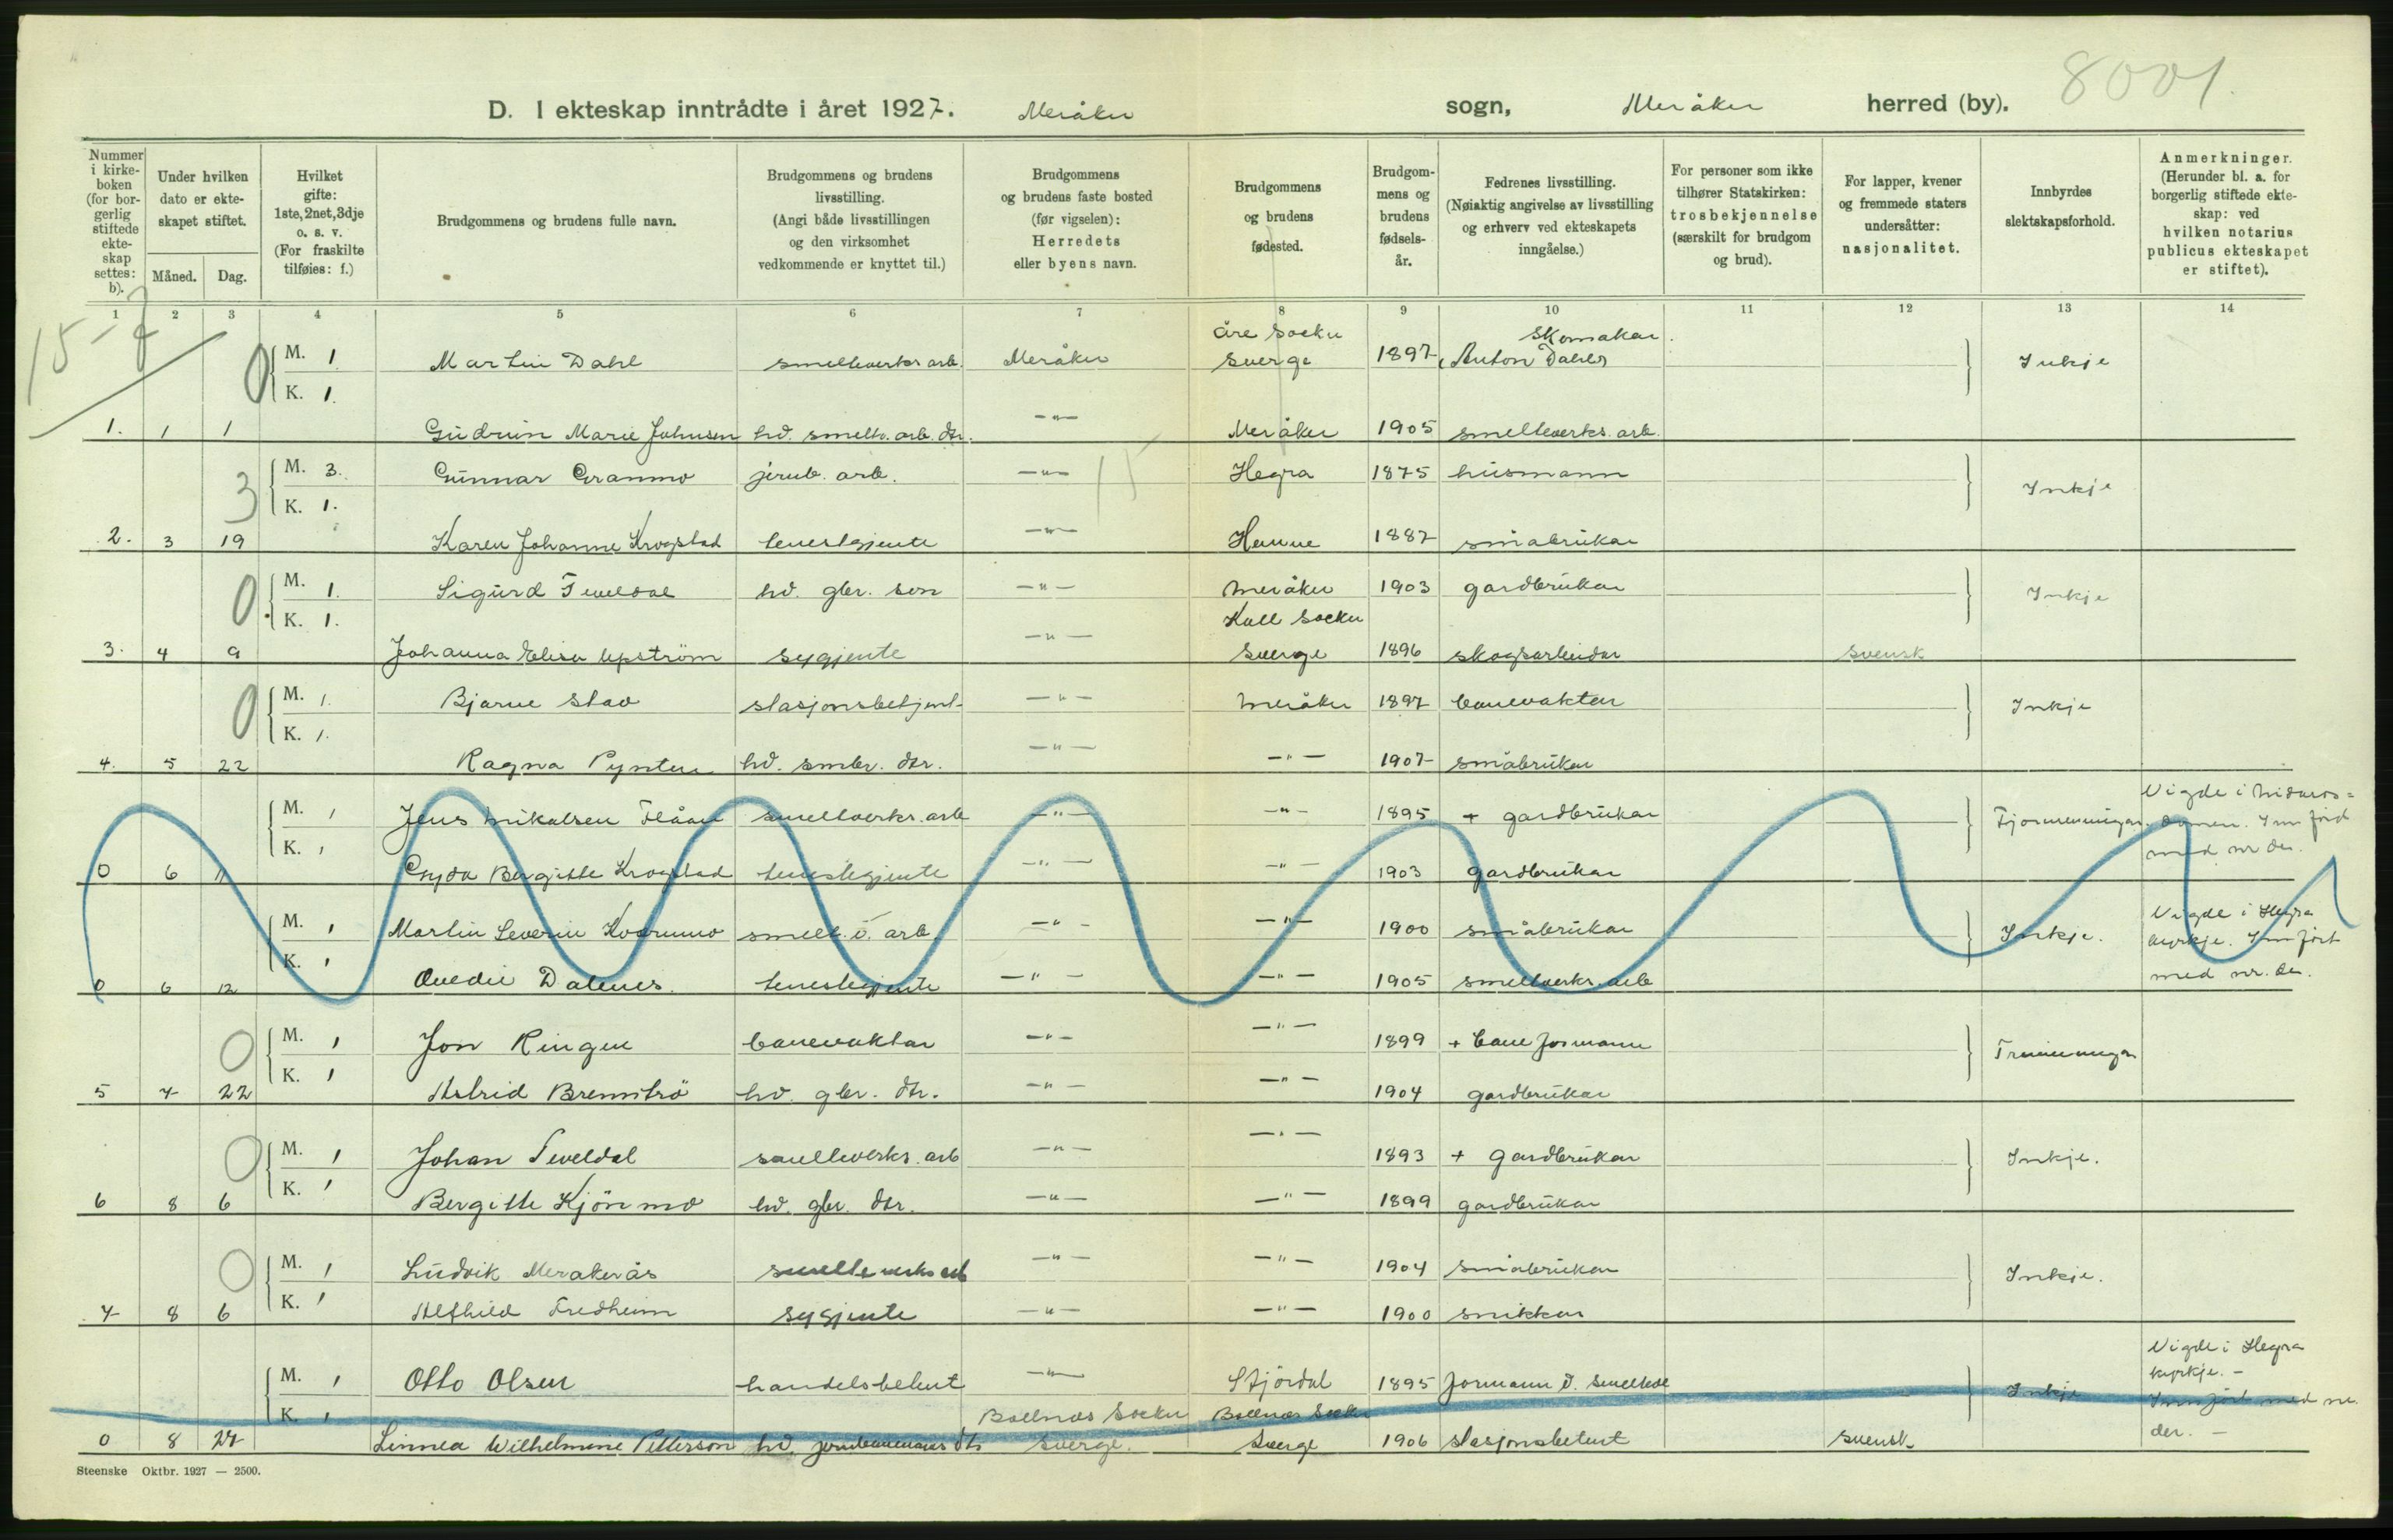 8001.
D. I ekteskap inntrådte i året 1927. Meråker sogn, Meråker herred (by).
Nummer i kirkeboken (for borgerlig stiftede ekteskap settes: b).
Under hvilken dato er ekteskapet stiftet.
Måned. Dag.
Hvilket gifte: 1ste, 2net, 3dje o. s. v. (For fraskilte tilføies: f.)
Brudgommens og brudens fulle navn.
Brudgommens og brudens livsstilling. (Angi både livsstillingen og den virksomhet vedkommende er knyttet til.)
Brudgommens og brudens faste bosted (før vigselen): Herredets eller byens navn.
Brudgommens og brudens fødested.
Brudgommens og brudens fødselsår.
Fedrenes livsstilling. (Nøiaktig angivelse av livsstilling og erhverv ved ekteskapets inngåelse.)
For personer som ikke tilhører Statskirken: trosbekjennelse (særskilt for brudgom og brud).
For lapper, kvener og fremmede staters undersåtter: nasjonalitet.
Innbyrdes slektskapsforhold.
Anmerkninger. (Herunder bl. a. for borgerlig stiftede ekteskap: ved hvilken notarius publicus ekteskapet er stiftet).
1 2 3 4 5 6 7 8 9 10 11 12 13 14
15-7
0 M. 1. Martin Dahl smelteverks arb. Meråker Åre Socken Sverge 1897 Skomakar (Anton Dahls) Inkje
K. 1.
1. 1 1 Gudrun Marie Johnsen hd. smeltv. arb. dtr. —„— Meråker 1905 smelteverks. arb.
3 M. 3. Gunnar Granmo jernb. arb. —„— 15 Hegra 1875 husmann Inkje
K. 1.
2. 3 19 Karen Johanne Krogstad tenestgjente —„— Henne 1887 småbrukar
0 M. 1. Sigurd Teveldal hd. gbr. son —„— Meråker 1903 gardbrukar Inkje
K. 1. Kall Socken
3. 4 9 Johanna Elisa Upström sygjente —„— Sverge 1896 skogsarbeidar svensk
0 M. 1. Bjarne Stav stasjonsbetjent —„— Meråker 1897 banevaktar Inkje
K. 1.
4. 5 22 Ragna Pynten hd. smbr. dtr. —„— —„— 1907 småbrukar
M. 1 Jens Mikalsen Flåan smelteverks. arb —„— —„— 1895 + gardbrukar Fjormenningar Vigde i Nidaros=
domen. Innført
K. 1 med nr der.
0 6 11 Gyda Bergitte Krogstad tenestegjente —„— —„— 1903 gardbrukar
M. 1 Martin Severin Kvernmo smelt. v. arb. —„— —„— 1900 småbrukar Inkje. Vigde i Hegra
kyrkje. Innført
K. 1 med nr. der.
0 6 12 Ovedie Dalenes. tenestegjente —„— —„— 1905 smelteverks. arb
0 M. 1 Jon Ringen banevaktar —„— —„— 1899 + bane formann Tremenningar
K. 1
5 7 22 Astrid Brenntrö hd. gbr. dtr. —„— —„— 1904 gardbrukar
0 M. 1 Johan Teveldal smelteverks. arb —„— —„— 1893 + gardbrukar Inkje.
K. 1
6 8 6 Bergitte Kjönmo hd. gbr. dtr. —„— —„— 1899 gardbrukar
0 M. 1 Ludvik Merakerås smelteverks arb —„— —„— 1904 småbrukar Inkje.
K. 1
7 8 6 Alfhild Fredheim sygjente —„— —„— 1900 snikkar
M. 1 Otto Olsen handelsbetent —„— Stjördal 1895 formann v. smeltev Inkje Vigde i Hegra
kyrkje. —
K. 1 Bollnäs Socken Bollnäs Socken Innført med nr.
0 8 27 Linnea Wilhelmine Petterson hd. dtr Sverge. Sverge 1906 stasjonsbetent svensk der. —
Steenske Oktbr. 1927 — 2500.